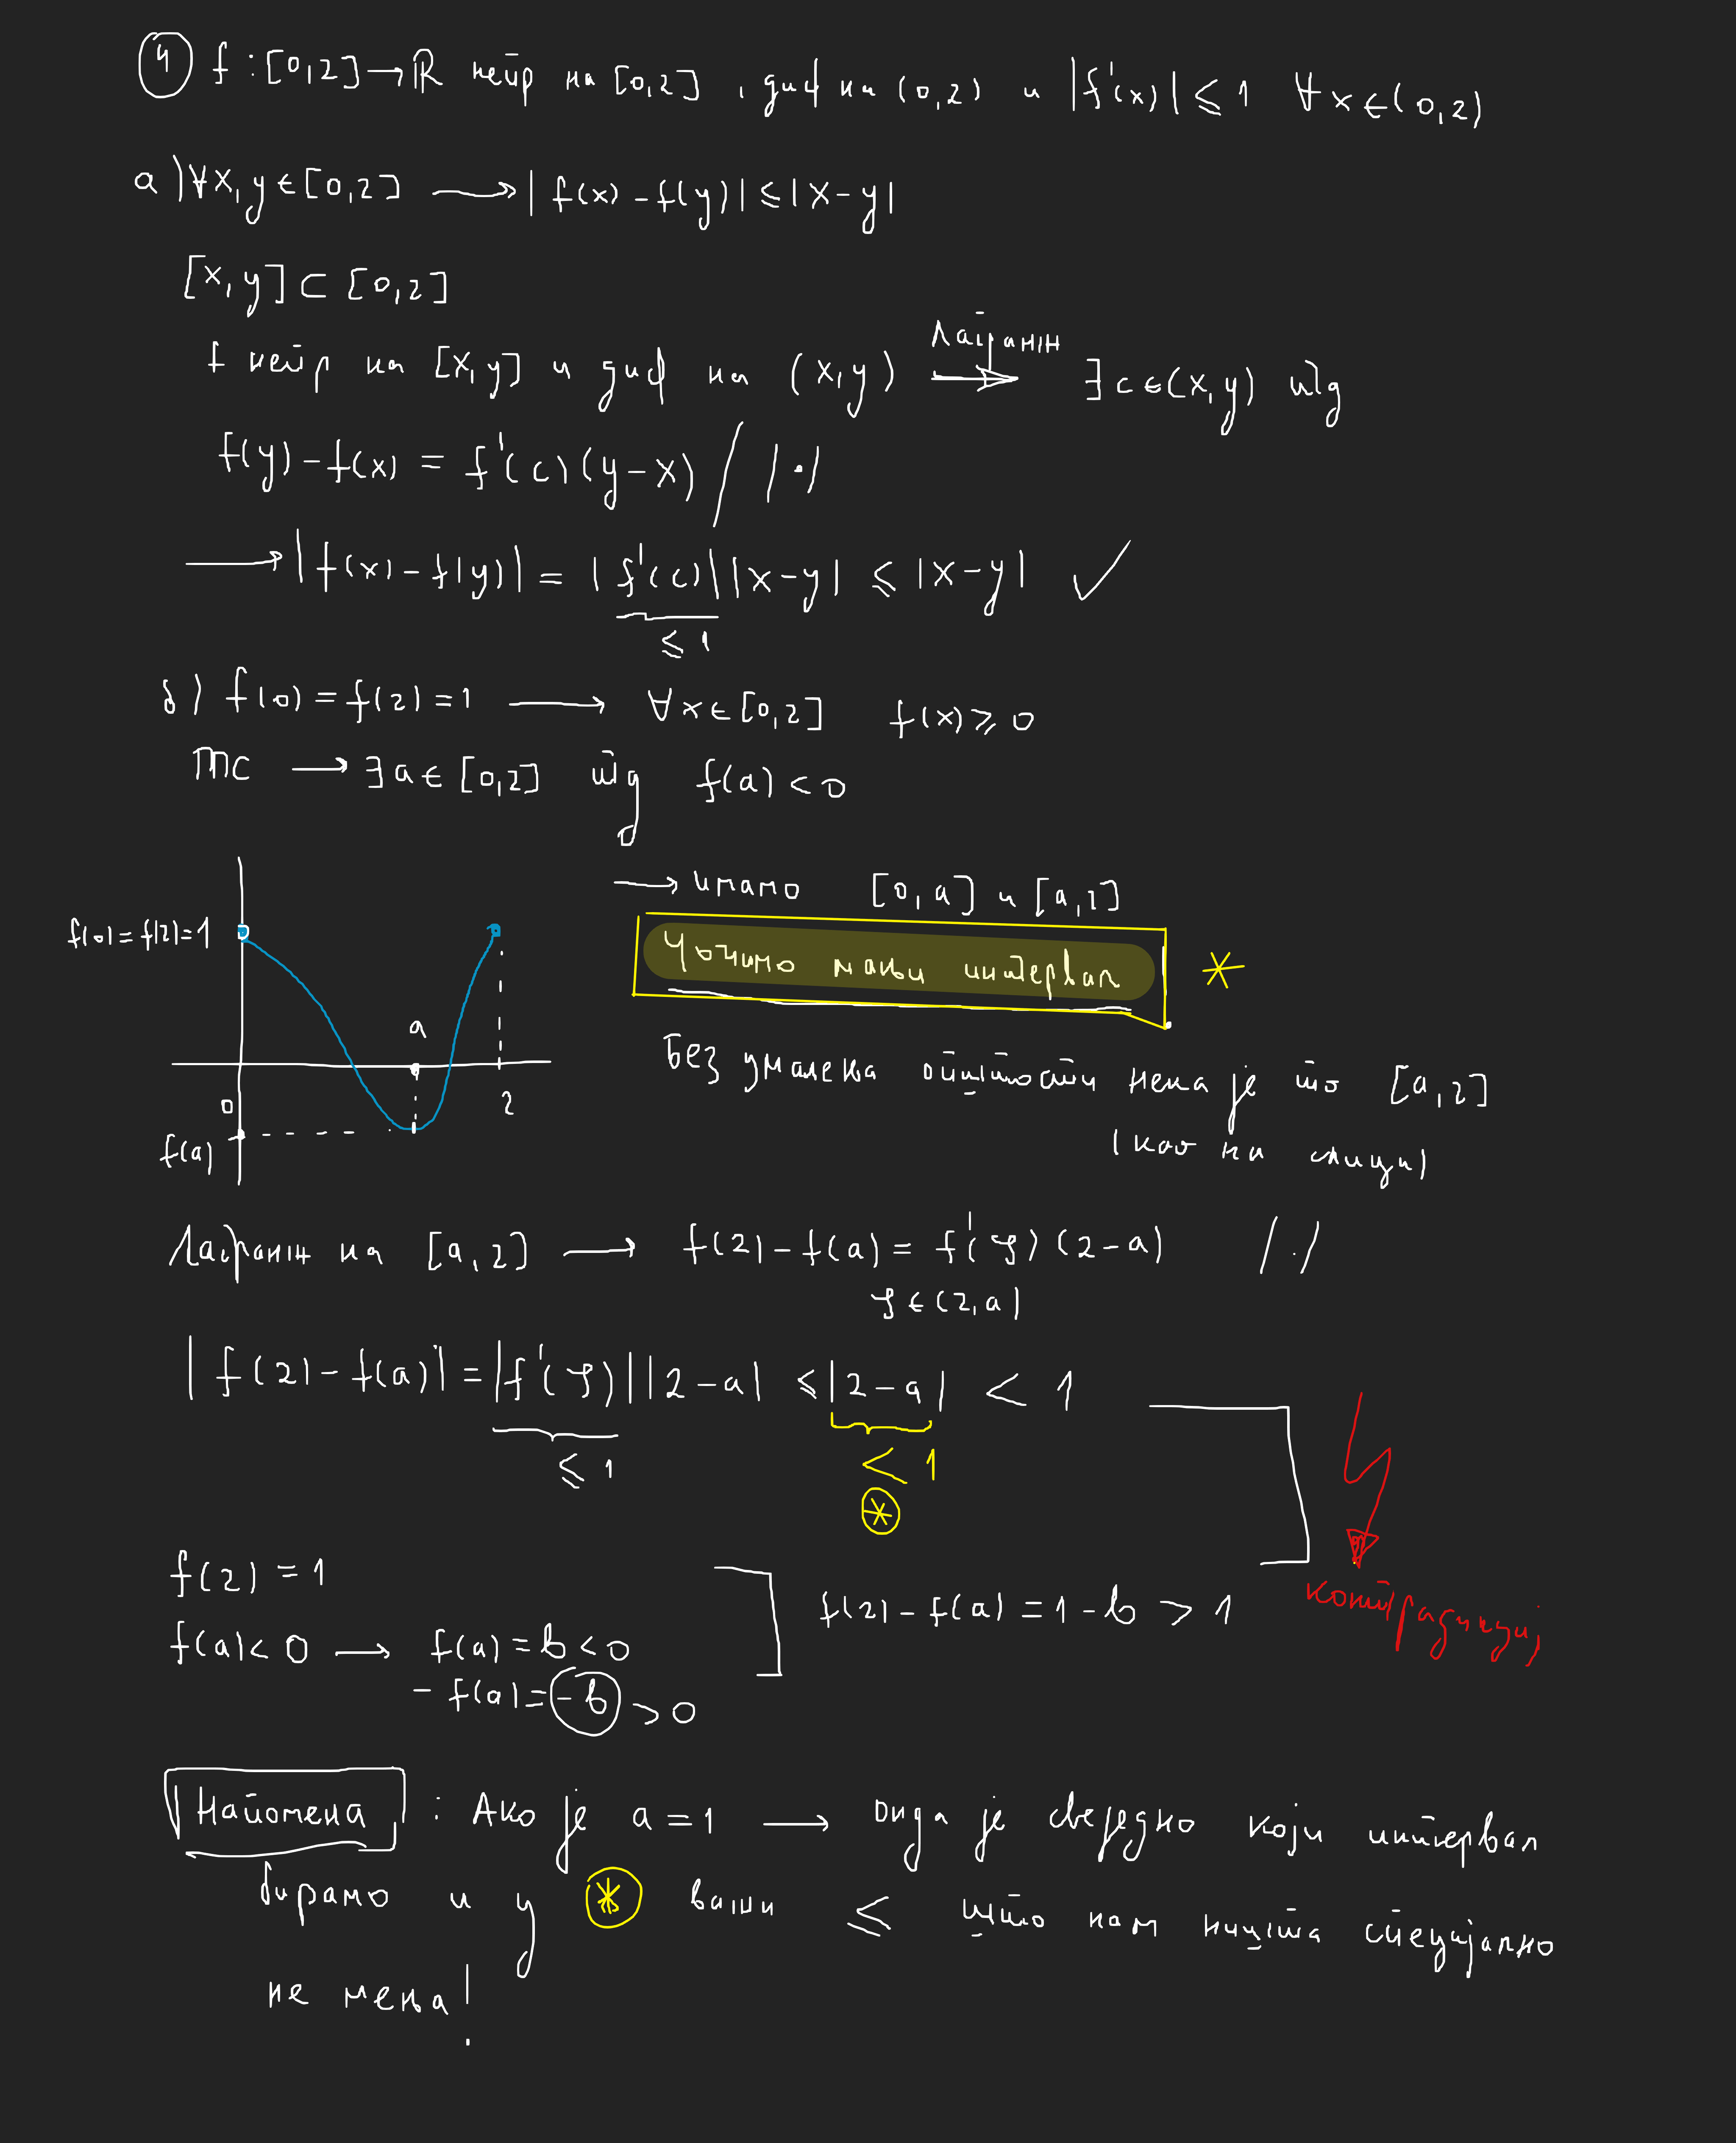 ① f : [0,2] → ℝ непр на [0,2] , диф на (0,2) и |f'(x)| ≤ 1 ∀x∈(0,2)
а) ∀x,y∈[0,2] ⟶ |f(x) - f(y)| ≤ |x-y|
[x,y] ⊂ [0,2]
f непр на [x,y] и диф на (x,y) ⟹ Лагранж ∃c∈(x,y) тд
f(y) - f(x) = f'(c)(y-x) / |·|
⟶ |f(x) - f(y)| = |f'(c)||x-y| ≤ |x-y| ✓
≤ 1
б) f(0) = f(2) = 1 ⟶ ∀x∈[0,2] f(x) ≥ 0
ПС ⟶ ∃a∈[0,2] тд f(a) < 0
⟶ имамо [0,a] и [a,2]
f(0) = f(2) = 1
Уочимо мањи интервал *
a
Без умањења општости нека је то [a,2]
0
2
(као на слици)
f(a)
Лагранж на [a,2] ⟶ f(2) - f(a) = f'(ξ)(2-a) |·|
ξ∈(2,a)
|f(2) - f(a)| = |f'(ξ)||2-a| ≤ |2-a| < 1
≤ 1
< 1
*
f(2) = 1
f(2) - f(a) = 1 - b > 1
контрадикција
f(a) < 0 ⟶ f(a) = b < 0
- f(a) = -b > 0
Напомена : Ако је a = 1 ⟶ онда је свеједно који интервал
бирамо и у * важи ≤ што нам ништа специјално
не мења!